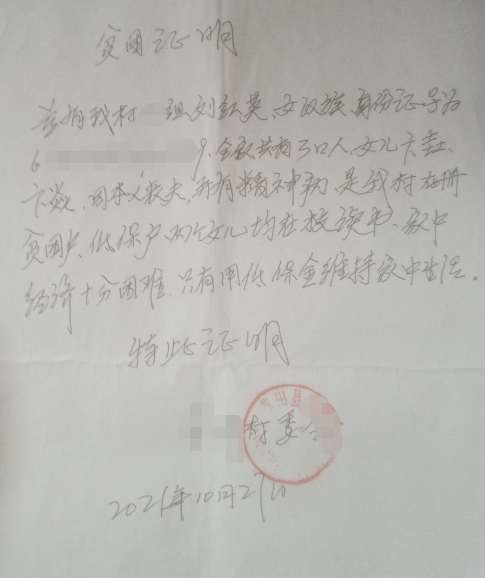 贫困证明
兹有我村 组刘红英、女汉族身份证号为
6 9.全家共有3口人、女儿卞
卞 因本人丧夫、患有精神病是我村在册
贫困户、低保户、两个女儿均在校读书、家中
经济十分困难.只有用低保金维持家中生活。
特此证明
村委会
2021年10月27日